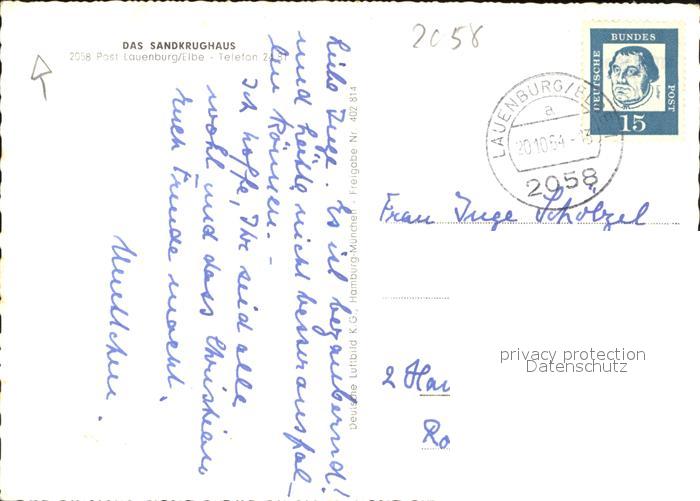 DAS SANDKRUGHAUS
2058 Post Lauenburg/Elbe - Telefon 24 31
Liebe Inge. Es ist bezaubernd!
und hätte nicht besser ausfal-
len können. -
Ich hoffe, Ihr seid alle
wohl und dass Christian
Euch Freude macht.
Muttchen.
Deutsche Luftbild K.G., Hamburg-München - Freigabe Nr. 402 814
2058
LAUENBURG/ELBE
a
20.10.64
2058
DEUTSCHE BUNDES POST
15
Frau Inge Schölzel
2 Ham
Ro
privacy protection
Datenschutz